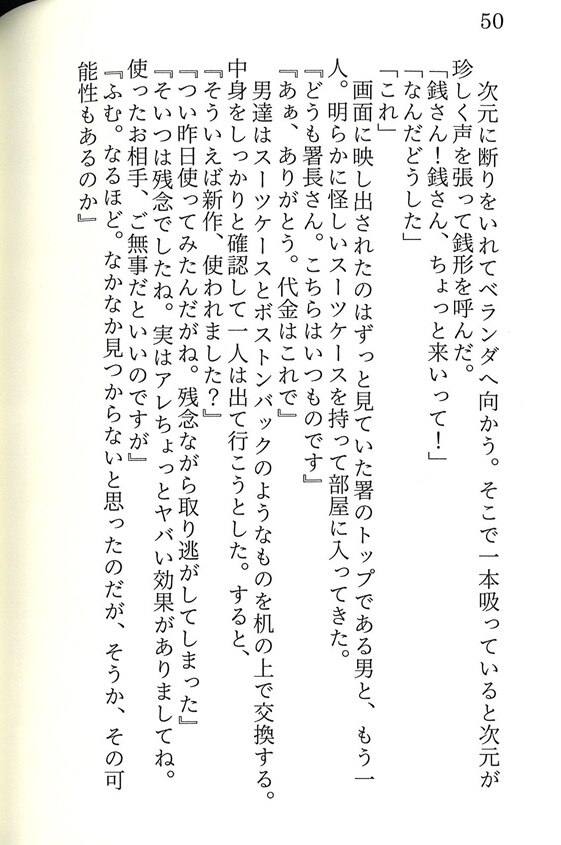 50
次元に断りをいれてベランダへ向かう。そこで一本吸っていると次元が
珍しく声を張って銭形を呼んだ。
「銭さん！銭さん、ちょっと来いって！」
「なんだどうした」
「これ」
画面に映し出されたのはずっと見ていた署のトップである男と、もう一
人。明らかに怪しいスーツケースを持って部屋に入ってきた。
『どうも署長さん。こちらはいつものです』
『あぁ、ありがとう。代金はこれで』
男達はスーツケースとボストンバックのようなものを机の上で交換する。
中身をしっかりと確認して一人は出て行こうとした。すると、
『そういえば新作、使われました？』
『つい昨日使ってみたんだがね。残念ながら取り逃がしてしまった』
『そいつは残念でしたね。実はアレちょっとヤバい効果がありましてね。
使ったお相手、ご無事だといいのですが』
『ふむ。なるほど。なかなか見つからないと思ったのだが、そうか、その可
能性もあるのか』